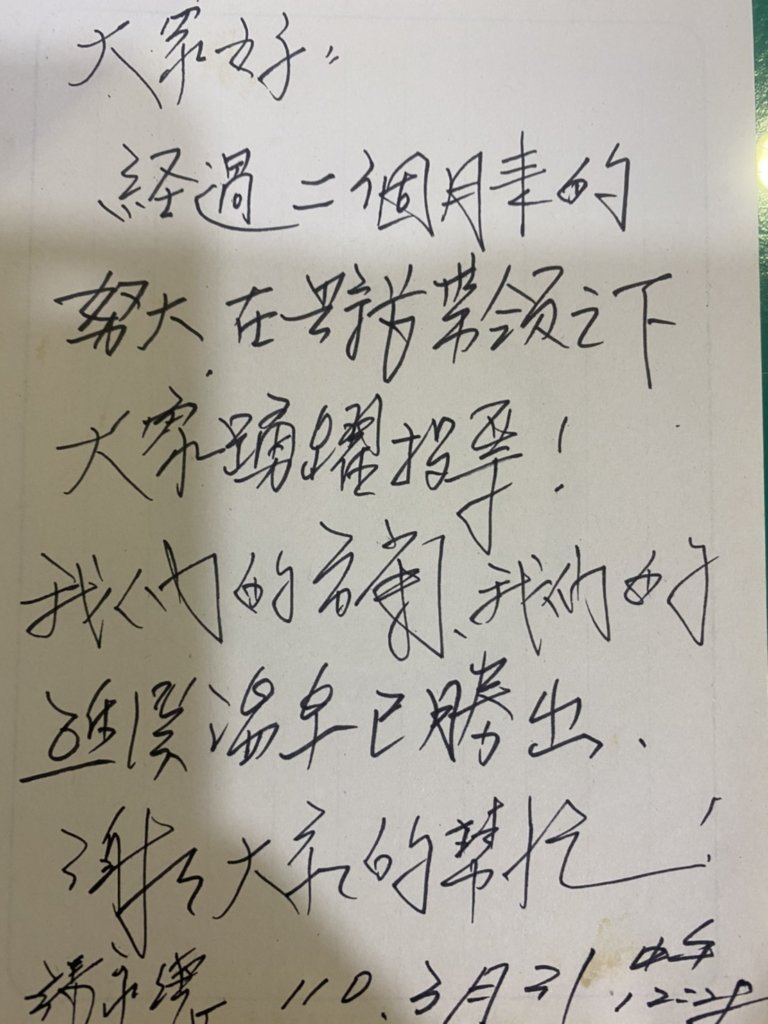 大家好,
經過二個月來的
努力,在 帶領之下
大家踴躍投票!
我們的 、我們的
溫 早已勝出.
謝謝大家的幫忙!
110.3月31 中午 12:28